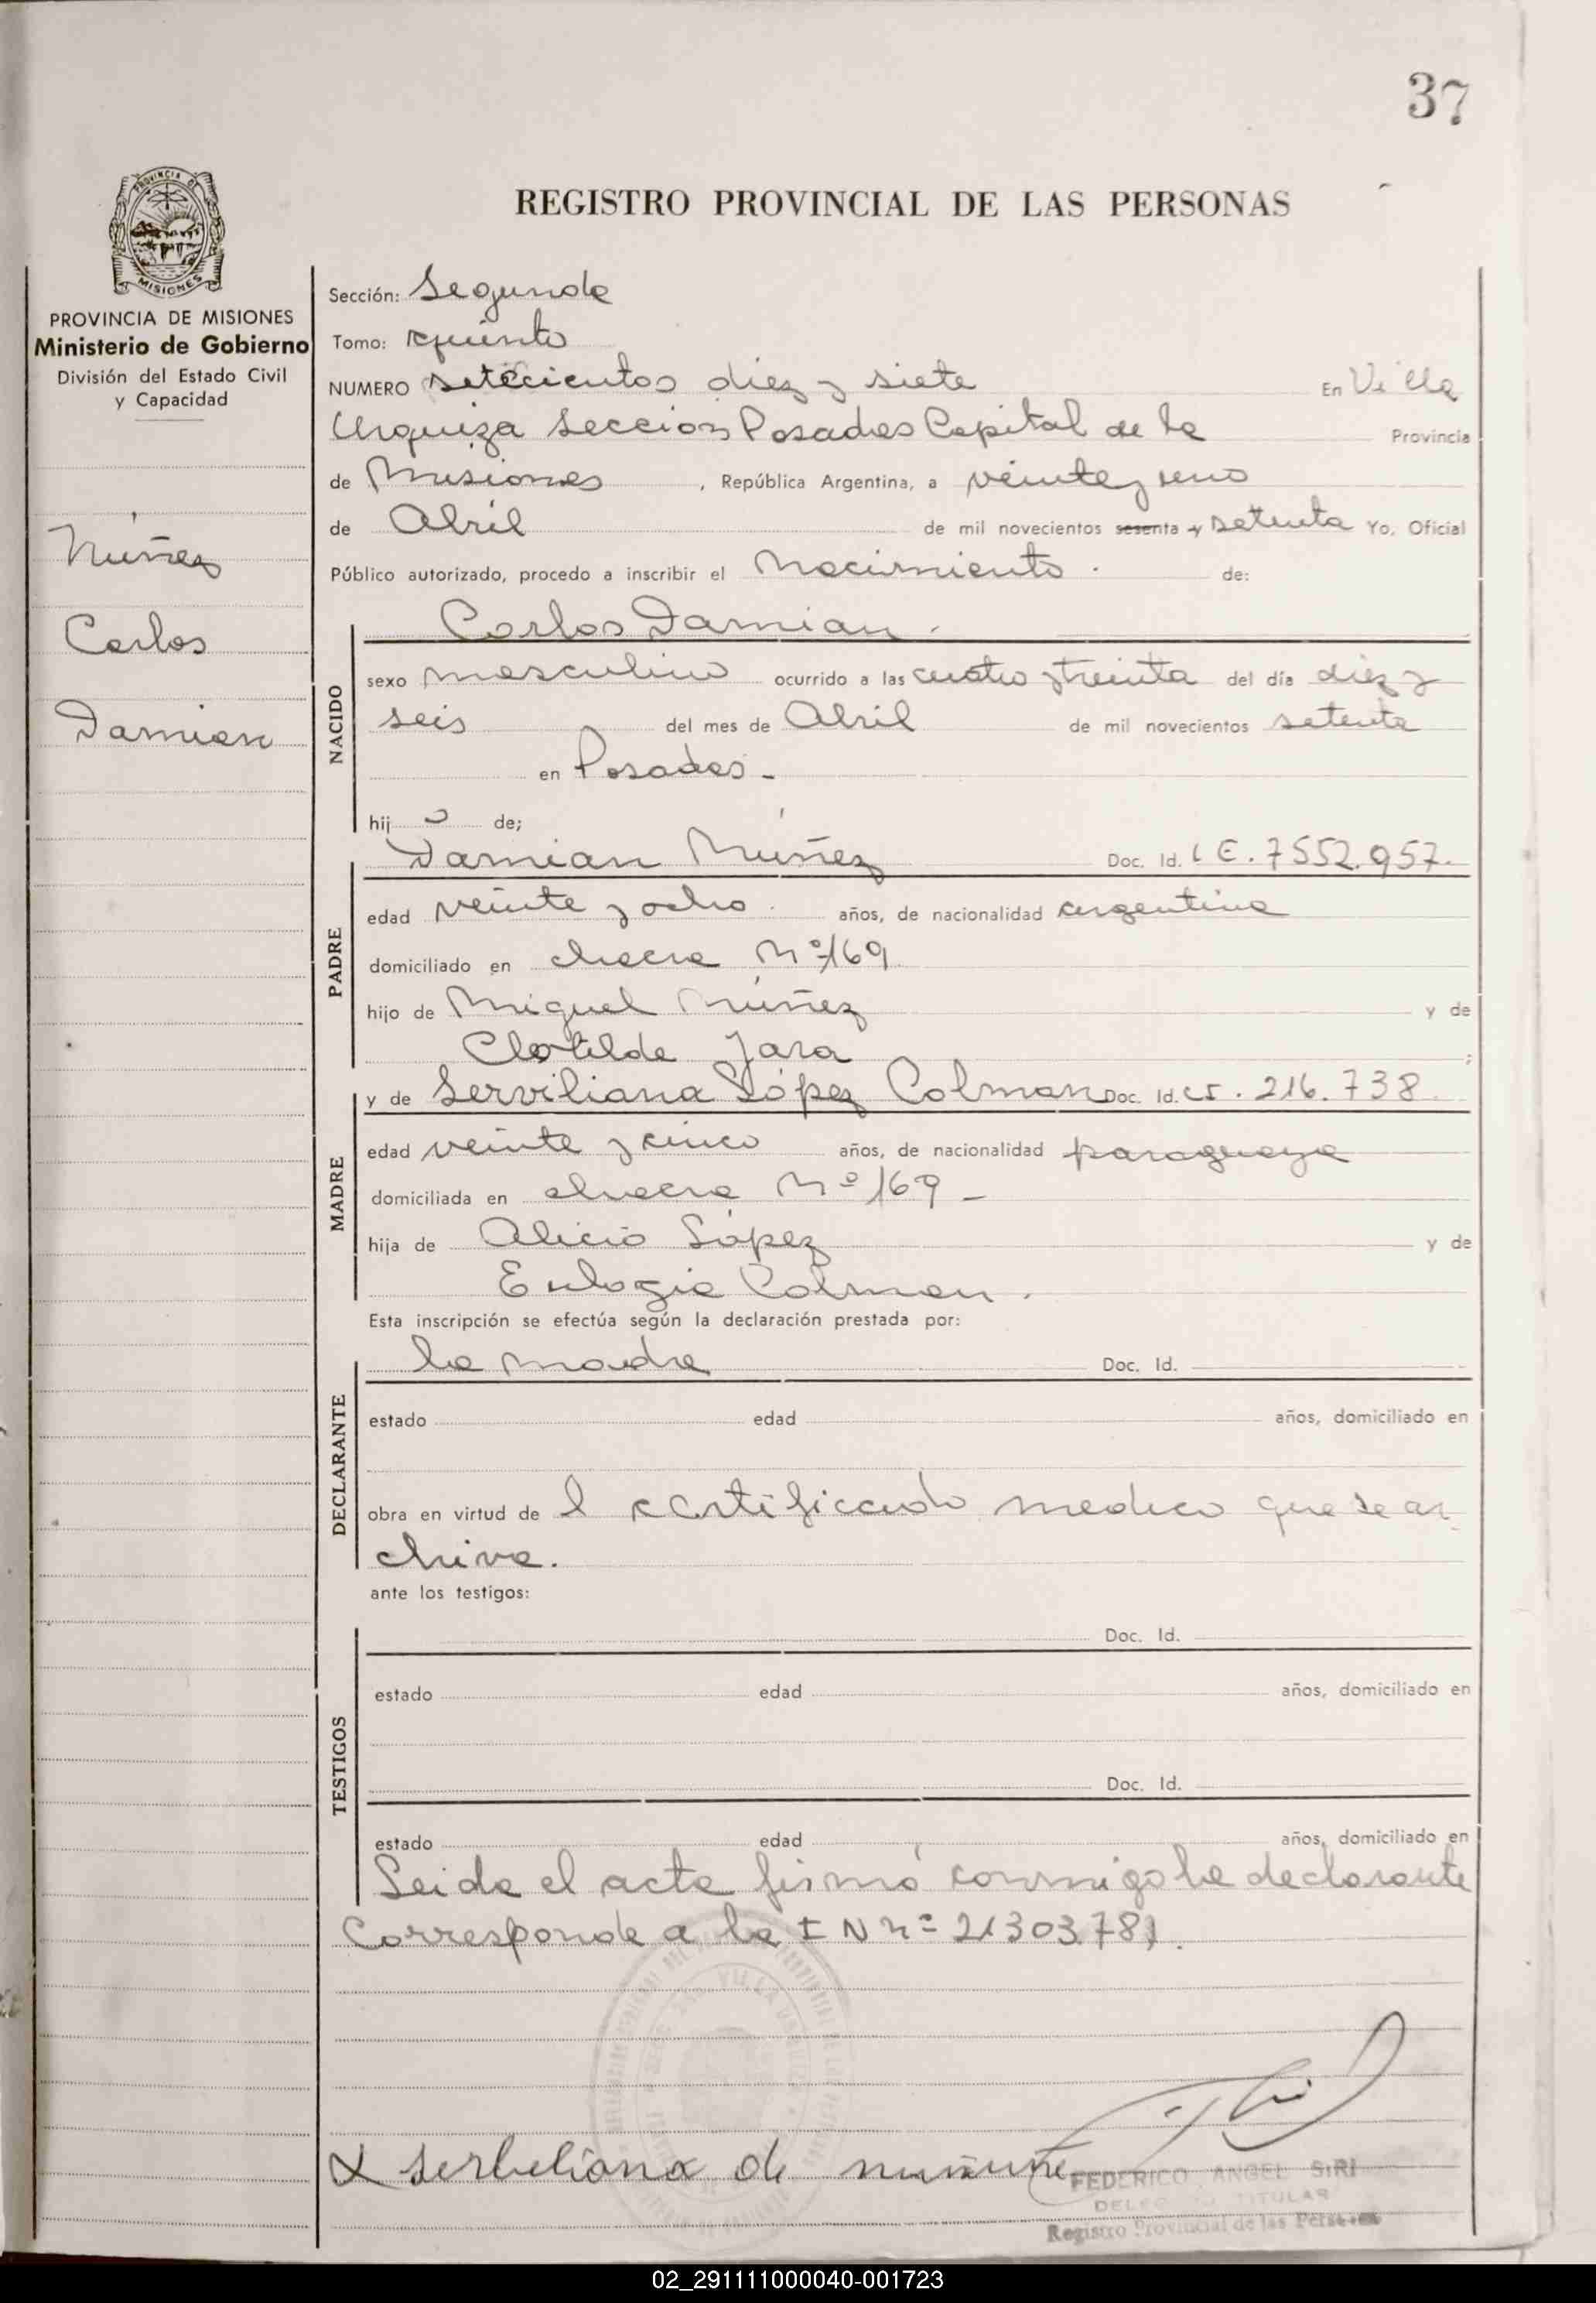 37
PROVINCIA DE
MISIONES
REGISTRO PROVINCIAL DE LAS PERSONAS
PROVINCIA DE MISIONES
Ministerio de Gobierno
División del Estado Civil
y Capacidad
Núñez
Carlos
Damian
Sección: Segunda
Tomo: quinto
NUMERO setecientos diez y siete En Villa
Urquiza Sección Posadas Capital de la Provincia
de Misiones, República Argentina, a veinte y uno
de Abril de mil novecientos sesenta y setenta Yo, Oficial
Público autorizado, procedo a inscribir el nacimiento. de:
NACIDO
Carlos Damian.
sexo masculino ocurrido a las cuatro y treinta del día diez y
seis del mes de Abril de mil novecientos setenta
en Posadas-
hij o de;
PADRE
Damian Núñez Doc. Id. L E. 7552.957.
edad veinte y ocho. años, de nacionalidad argentina
domiciliado en chacra Nº 169
hijo de Miguel Núñez y de
Clotilde Jara;
MADRE
y de Serviliana López Colman Doc. Id. CI. 216.738
edad veinte y cinco años, de nacionalidad paraguaya
domiciliada en chacra Nº 169-
hija de Alicio López y de
Eulogia Colman.
Esta inscripción se efectúa según la declaración prestada por:
DECLARANTE
la madre Doc. Id.
estado edad años, domiciliado en
obra en virtud de l certificado medico que se ar
chiva.
ante los testigos:
TESTIGOS
Doc. Id.
estado edad años, domiciliado en
Doc. Id.
estado edad años, domiciliado en
Leida el acta firmó conmigo la declarante
Corresponde a la I N nº 21303.781.
X serbeliana de
FEDERICO ANGEL SIRI
TITULAR
Registro Provincial de las Personas
02_291111000040-001723